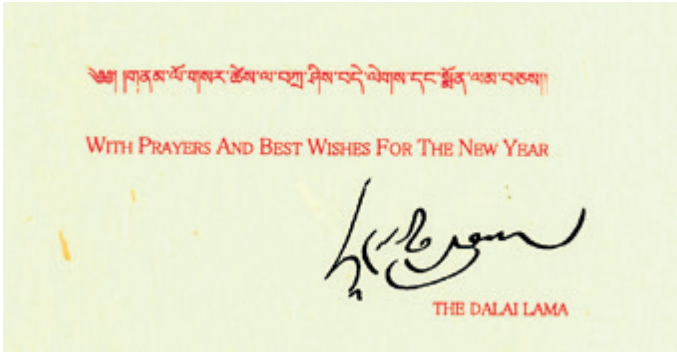 ༄༅། །གནམ་ལོ་གསར་ཚེས་ལ་བཀྲ་ཤིས་བདེ་ལེགས་དང་སྨོན་ལམ་བཅས།།
WITH PRAYERS AND BEST WISHES FOR THE NEW YEAR
THE DALAI LAMA